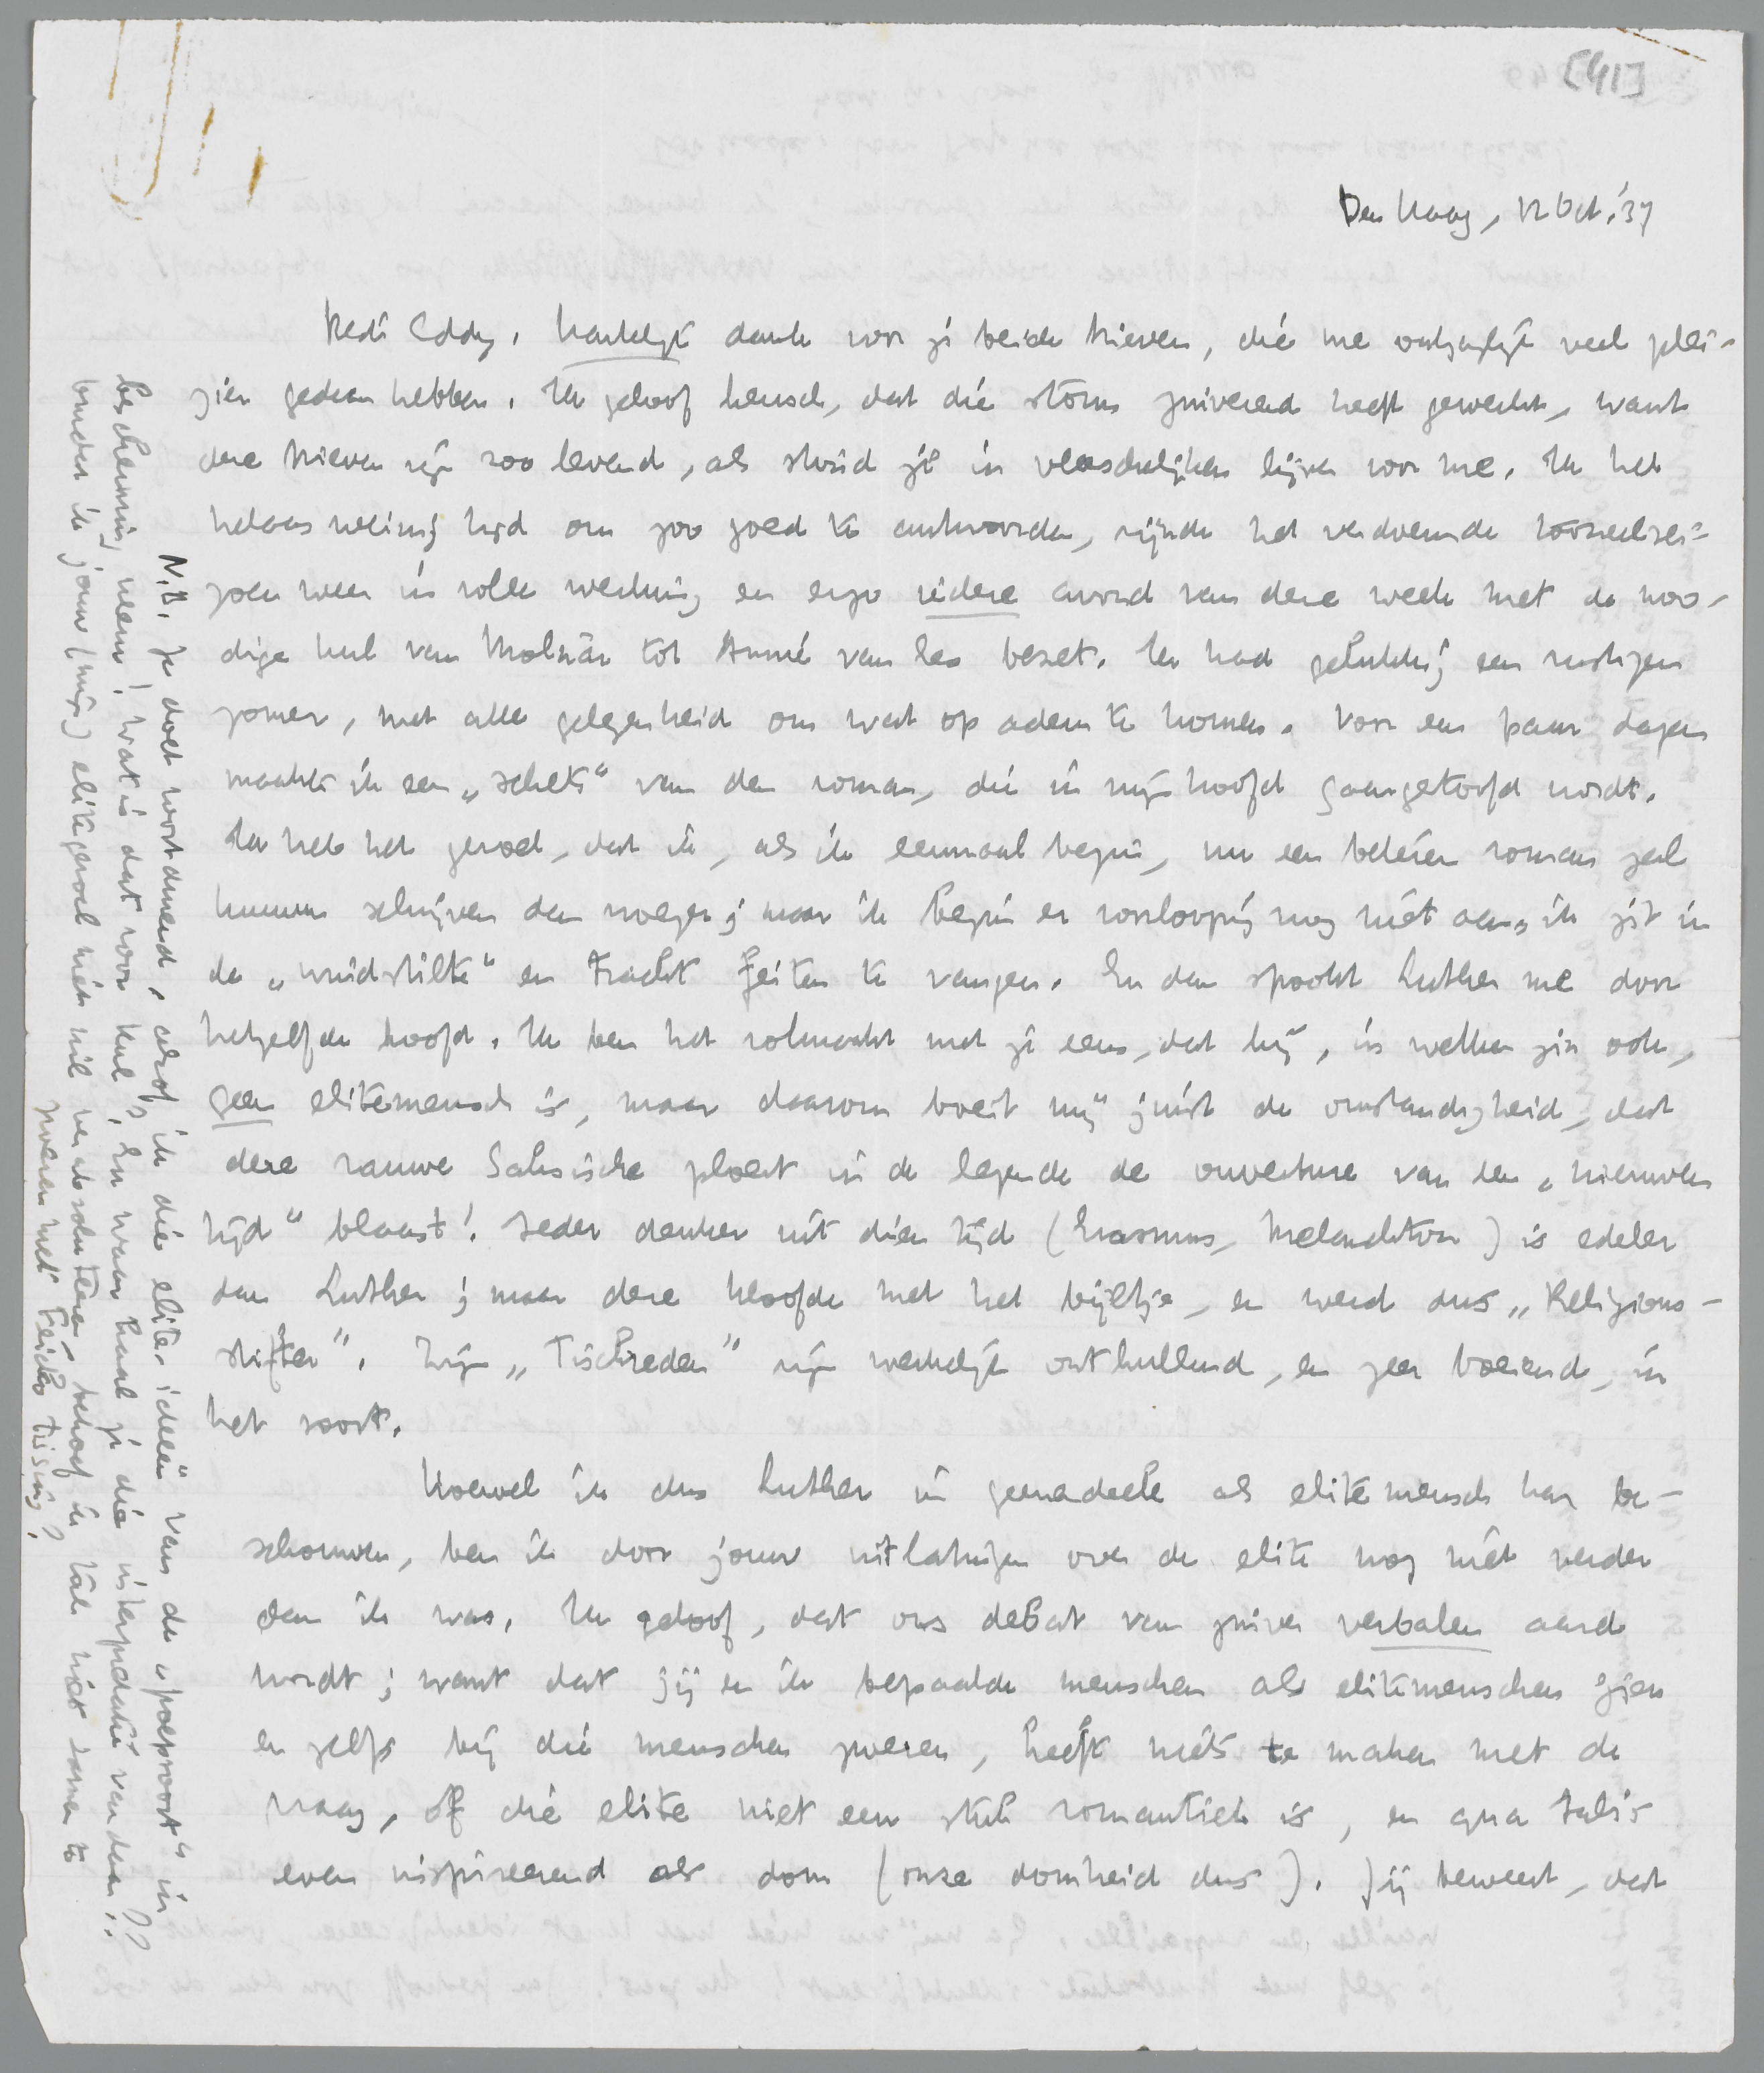 [41]
Den Haag, 12 Oct. '37
Beste Eddy, hartelijk dank voor je beide brieven, die me ontzaglijk veel plei-
zier gedaan hebben. Ik geloof heusch, dat die storm zuiverend heeft gewerkt, want
deze brieven zijn zoo levend, als stond je in vleeschelijken lijve voor me. Ik heb
helaas weinig tijd om zoo goed te antwoorden, zijnde het verdoemde tooneelsei-
zoen weer in volle werking en ergo iedere avond van deze week met de noo-
dige kul van Molnár tot Annie van Ees bezet. Ik had gelukkig een rustigen
zomer, met alle gelegenheid om wat op adem te komen. Voor een paar dagen
maakte ik een „schets" van den roman, die in mijn hoofd gaargestoofd wordt.
Ik heb het gevoel, dat ik, als ik eenmaal begin, nu een beteren roman zal
kunnen schrijven dan vroeger; maar ik begin er voorloopig nog niet aan, ik zit in
de „windstilte" en tracht feiten te vangen. En dan spookt Luther me door
hetzelfde hoofd. Ik ben het volmaakt met je eens, dat hij, in welken zin ook,
geen elitemensch is, maar daarom boeit mij juist de omstandigheid, dat
deze rauwe Saksische ploert in de legende de ouverture van een „nieuwen
tijd" blaast! Ieder denker uit dien tijd (Erasmus, Melanchton) is edeler
dan Luther; maar deze kloofde met het bijltje, en werd dus „Religions-
stifter". Zijn „Tischreden" zijn werkelijk onthullend, en zeer boeiend, in
het soort.
Hoewel ik dus Luther in geenendeele als elitemensch kan be-
schouwen, ben ik door jouw uitlatingen over de elite nog niet verder
dan ik was. Ik geloof, dat ons debat van zuiver verbalen aard
wordt; want dat jij en ik bepaalde menschen als elitemenschen zien
en zelfs bij die menschen zweren, heeft niets te maken met de
vraag, óf die elite niet een stuk romantiek is, en qua talis
even inspireerend als dom (onze domheid dus). Jij beweert, dat
N.B. Je doet voortdurend, alsof ik die elite-ideeën van de „poepsoort" in
bescherming neem! Wat is dat voor kul? En waar haal je die interpretatie vandaan??
Omdat ik jouw (mijn) elitegevoel niet wil verabsoluteeren, behoef ik toch niet samen te
zweren met Feicko Tissing?